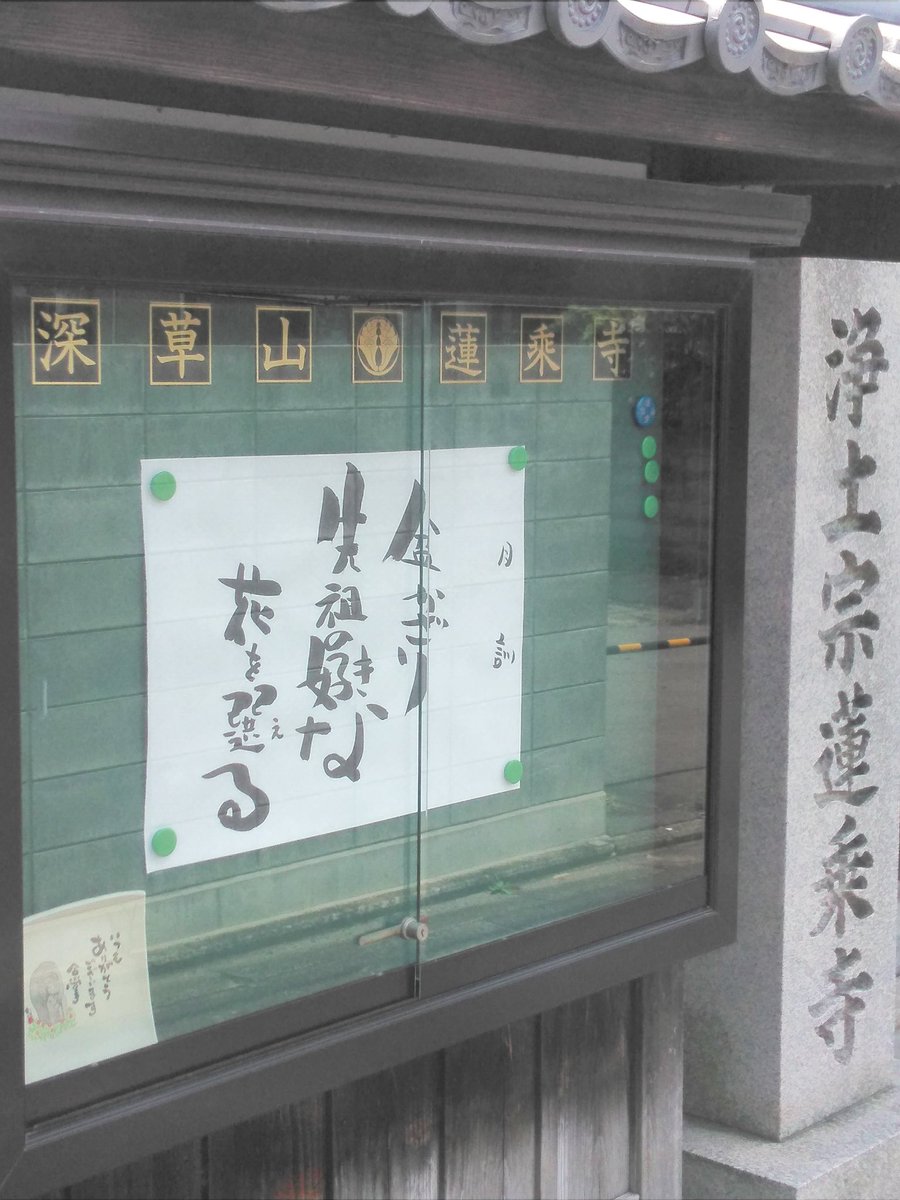 深草山 蓮乗寺
月訓
盆がざり
先祖好きな
花を選る
え
いつも
ありがとう
ございます
合掌
浄土宗蓮乗寺